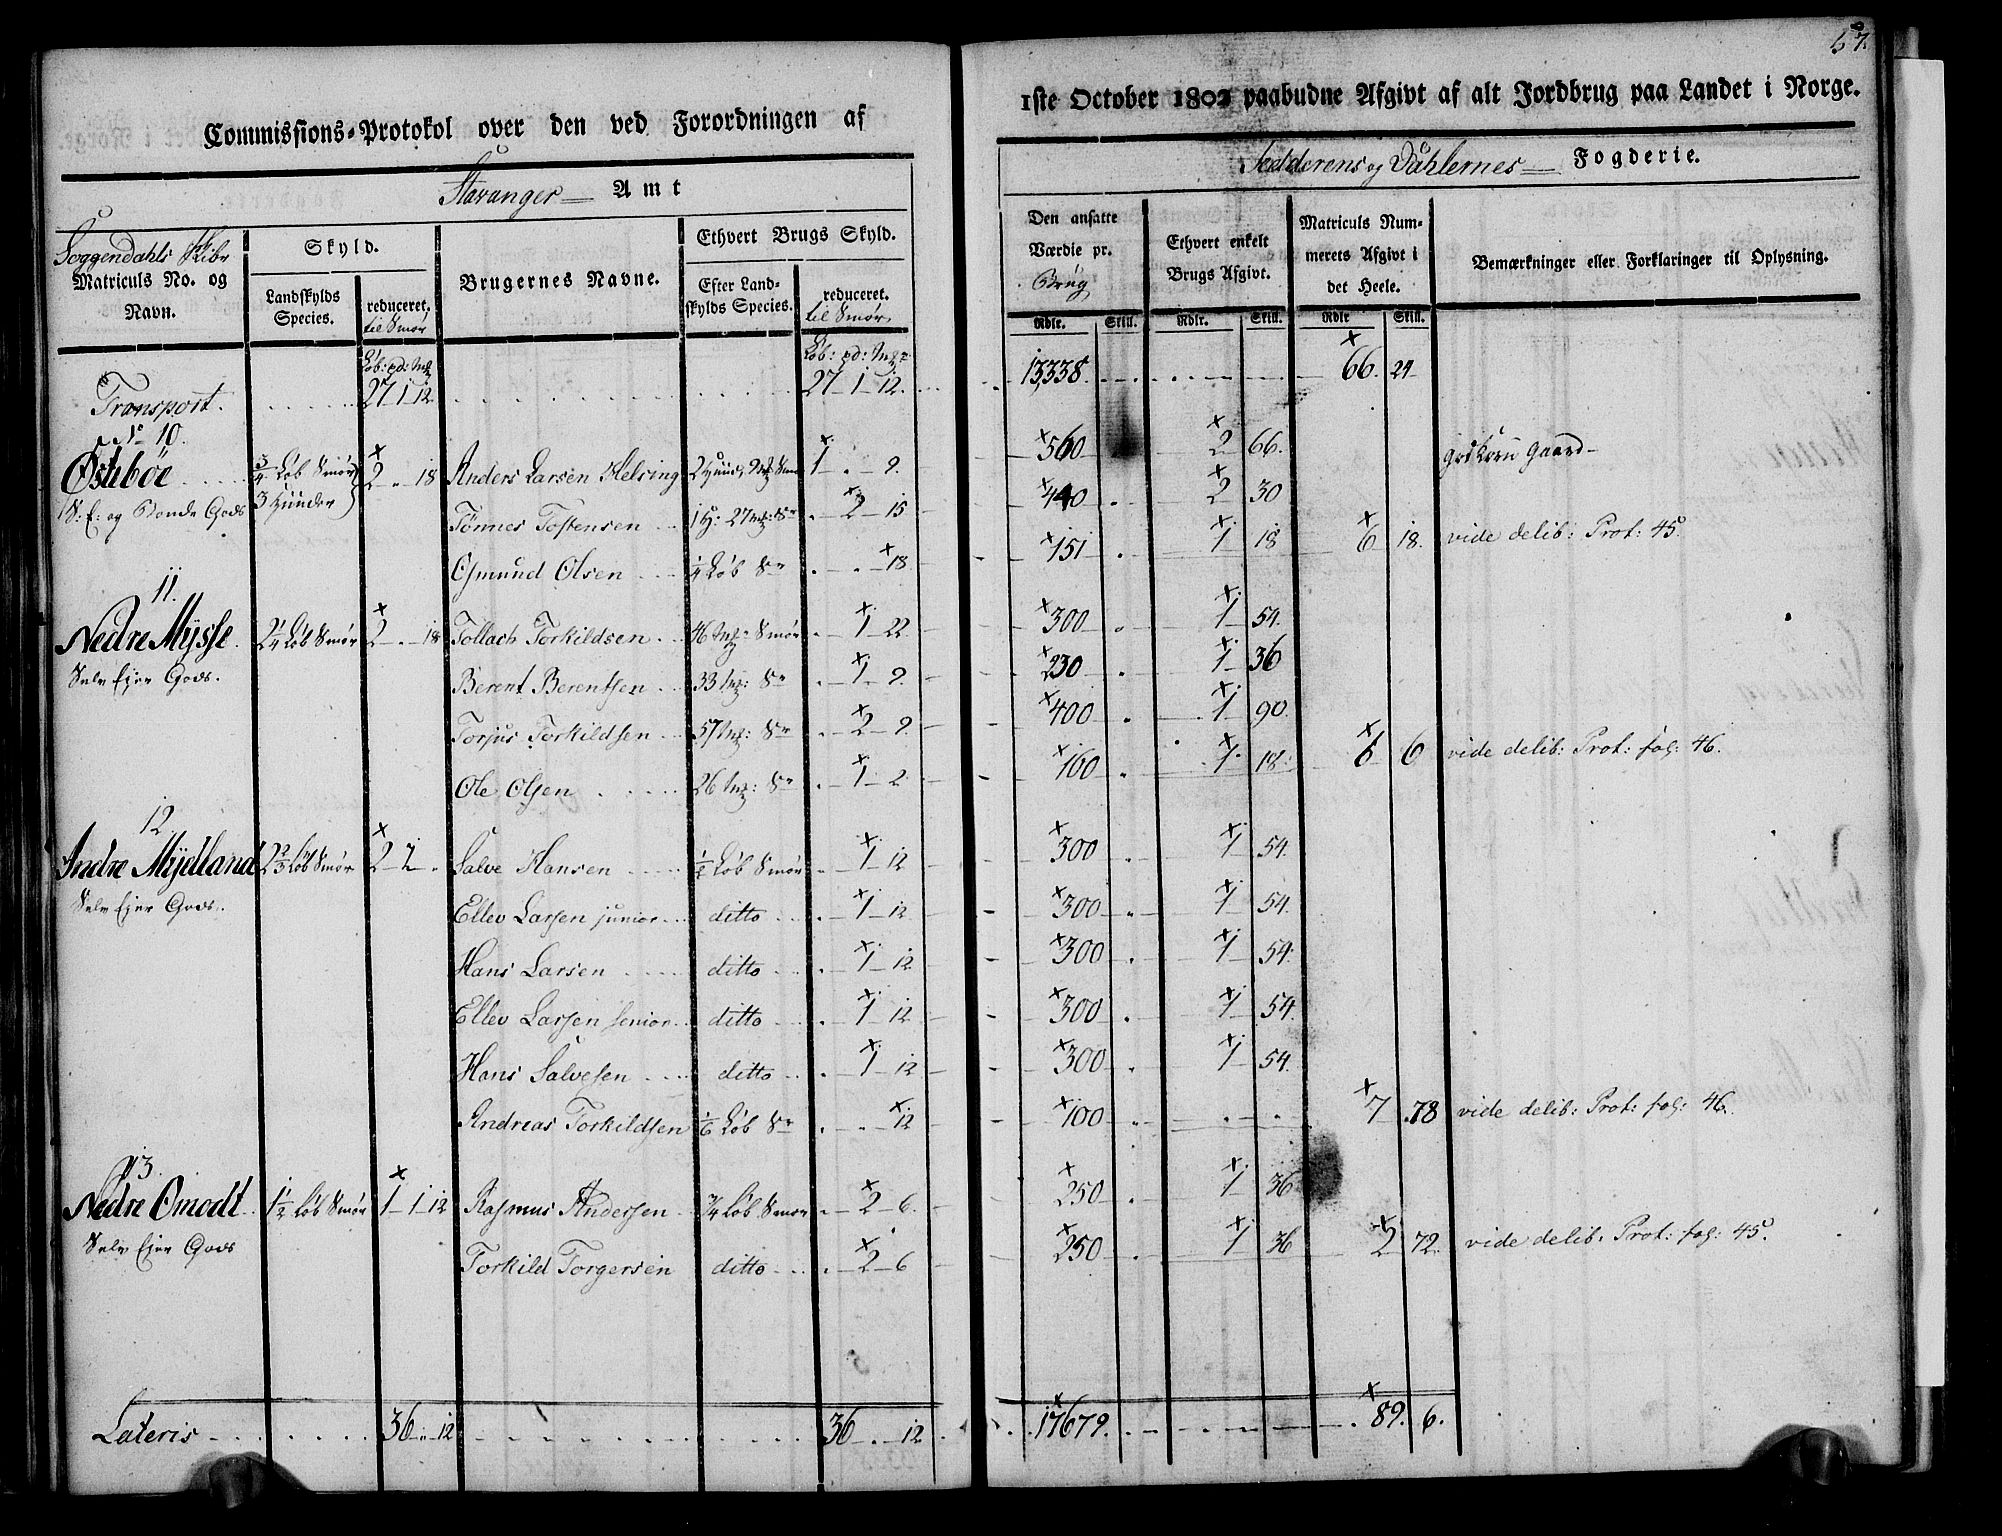 57.
Commissions-Protokol over den ved Forordningen af
1ste October 1802 paabudne Afgivt af alt Jordbrug paa Landet i Norge.
Stavanger Amt
Jedderens og Dahlernes Fogderie.
Soggendahls Skibr
Matriculs No. og Navn.
Skyld.
Landskylds Species.
reduceret. til Smør
Brugernes Navne.
Ethvert Brugs Skyld.
Efter Landskylds Species.
reduceret. til Smør
Den ansatte Værdie pr. Brug
Ethvert enkelt Brugs Afgivt.
Matriculs Nummerets Afgivt i det Heele.
Bemærkninger eller Forklaringer til Oplysning.
Rdlr. Skill. Rdlr. Skill. Rdlr Skill.
Løb: pd: Mk Løb: pd: Mk
Transport. 27 1 12 27 - 1 - 12. 13338. 66. 24
No 10.
Østebøe 3/4 Løb Smør 3 Hunder 2 .. 18 Anders Larsen Helsing 1 . - 9. 560 2 66. God Korn Gaard
S: E: og Bonde Gods Tønnes Tostensen 1 H: 27 mk: Sr . - 2 - 15 440 2 30
Osmund Olsen 1/4 Løb Sr . . - 18 151 1 18 6 18. vide delib: Prot: 45
11.
Nedre Mysse 2 1/4 Løb Smør 2 . - 18 Tollach Torkildsen 46 mk Smør . - 1 - 22 300 1 54.
Selv Ejer Gods. Berent Berentsen 33 mk: Sr . - 1 - 9. 230 1 36
Torjus Torkildsen 57 mk: Sr . - 2 - 9. 400 1 90.
Ole Olsen 26 mk: Sr . - 1 - 2. 160 1 18. 6 6 vide delib: Prot: fol: 46.
12.
Indre Mydland 2 2/3 Løb Smør 2 - 2 . Salve Hansen 1/2 Løb Smør . - 1 - 12 300 1 54.
Selv Ejer Gods. Ellev Larsen junior ditto . - 1 - 12 300 1 54.
Hans Larsen ditto . - 1 - 12 300 1 54.
Ellev Larsen senior ditto . - 1 - 12 300 1 54.
Hans Salvesen ditto . - 1 - 12 300 1 54.
Andreas Torkildsen 1/6 Løb Sr . . - 12 100 7 78 vide delib: Prot: fol: 46.
13.
Nedre Omodt 1 1/2 Løb Smør 1 - 1 - 12 Rasmus Andersen 3/4 Løb Smør . - 2 - 6. 250 1 36
Selv Ejer Gods Torkild Torgersen ditto . - 2 - 6 250 1 36 2 72. vide delib: Prot: fol: 45.
Lateris 36 .. 12 36 . - 12 17679. 89. 6.